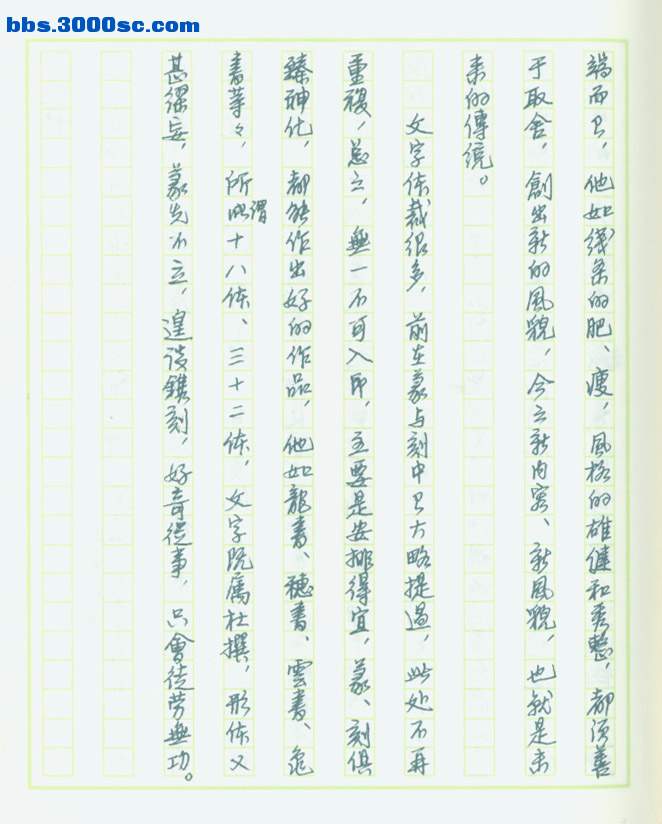 bbs.3000sc.com
端而已，他如线条的肥、瘦，風格的雄健和秀整，都須善
于取舍，創出新的風貌，今之新内容、新風貌，也就是未
来的傳統。
文字体裁很多，前在篆与刻中已大略提過，此处不再
重複，总之，無一不可入印，主要是安排得宜，篆、刻俱
臻神化，都能作出好的作品，他如龍書、穗書、雲書、龟
書䓁々，所謂十八体、三十二体，文字既属杜撰，形体又
甚謬妄，篆先不立，遑谈鐫刻，好奇從事，只會徒劳無功。